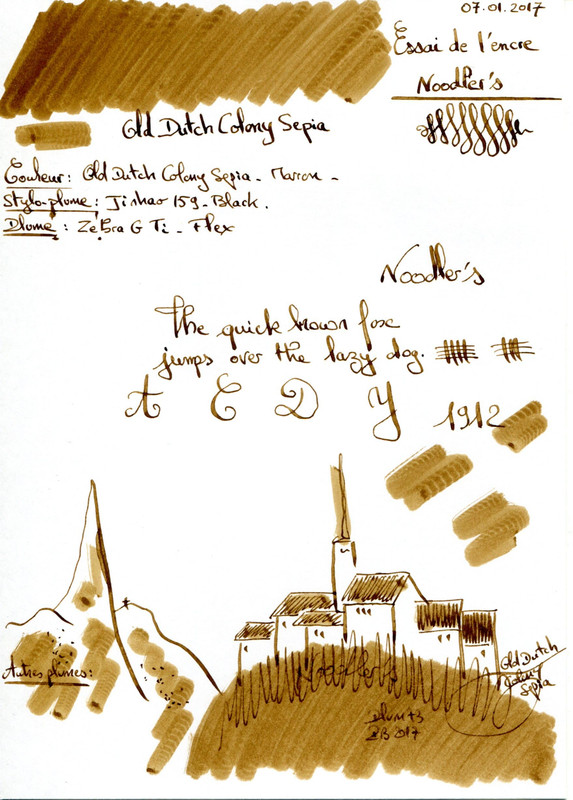 07.01.2017
Essai de l'encre
Noodler's
Old Dutch Colony Sepia
Couleur: Old Dutch Colony Sepia - Marron -
Stylo-plume: Jinhao 159 - Black.
Plume: Zebra G Ti - Flex
Noodler's
The quick brown fox
jumps over the lazy dog.
A C D Y 1912
Autres plumes:
Noodler's
Old Dutch
Colony
Sepia
2017